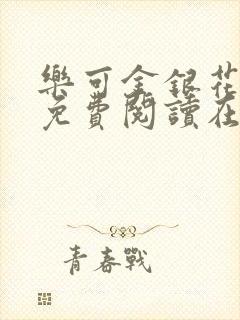 樂可金銀花
免費閱讀在
青春戰